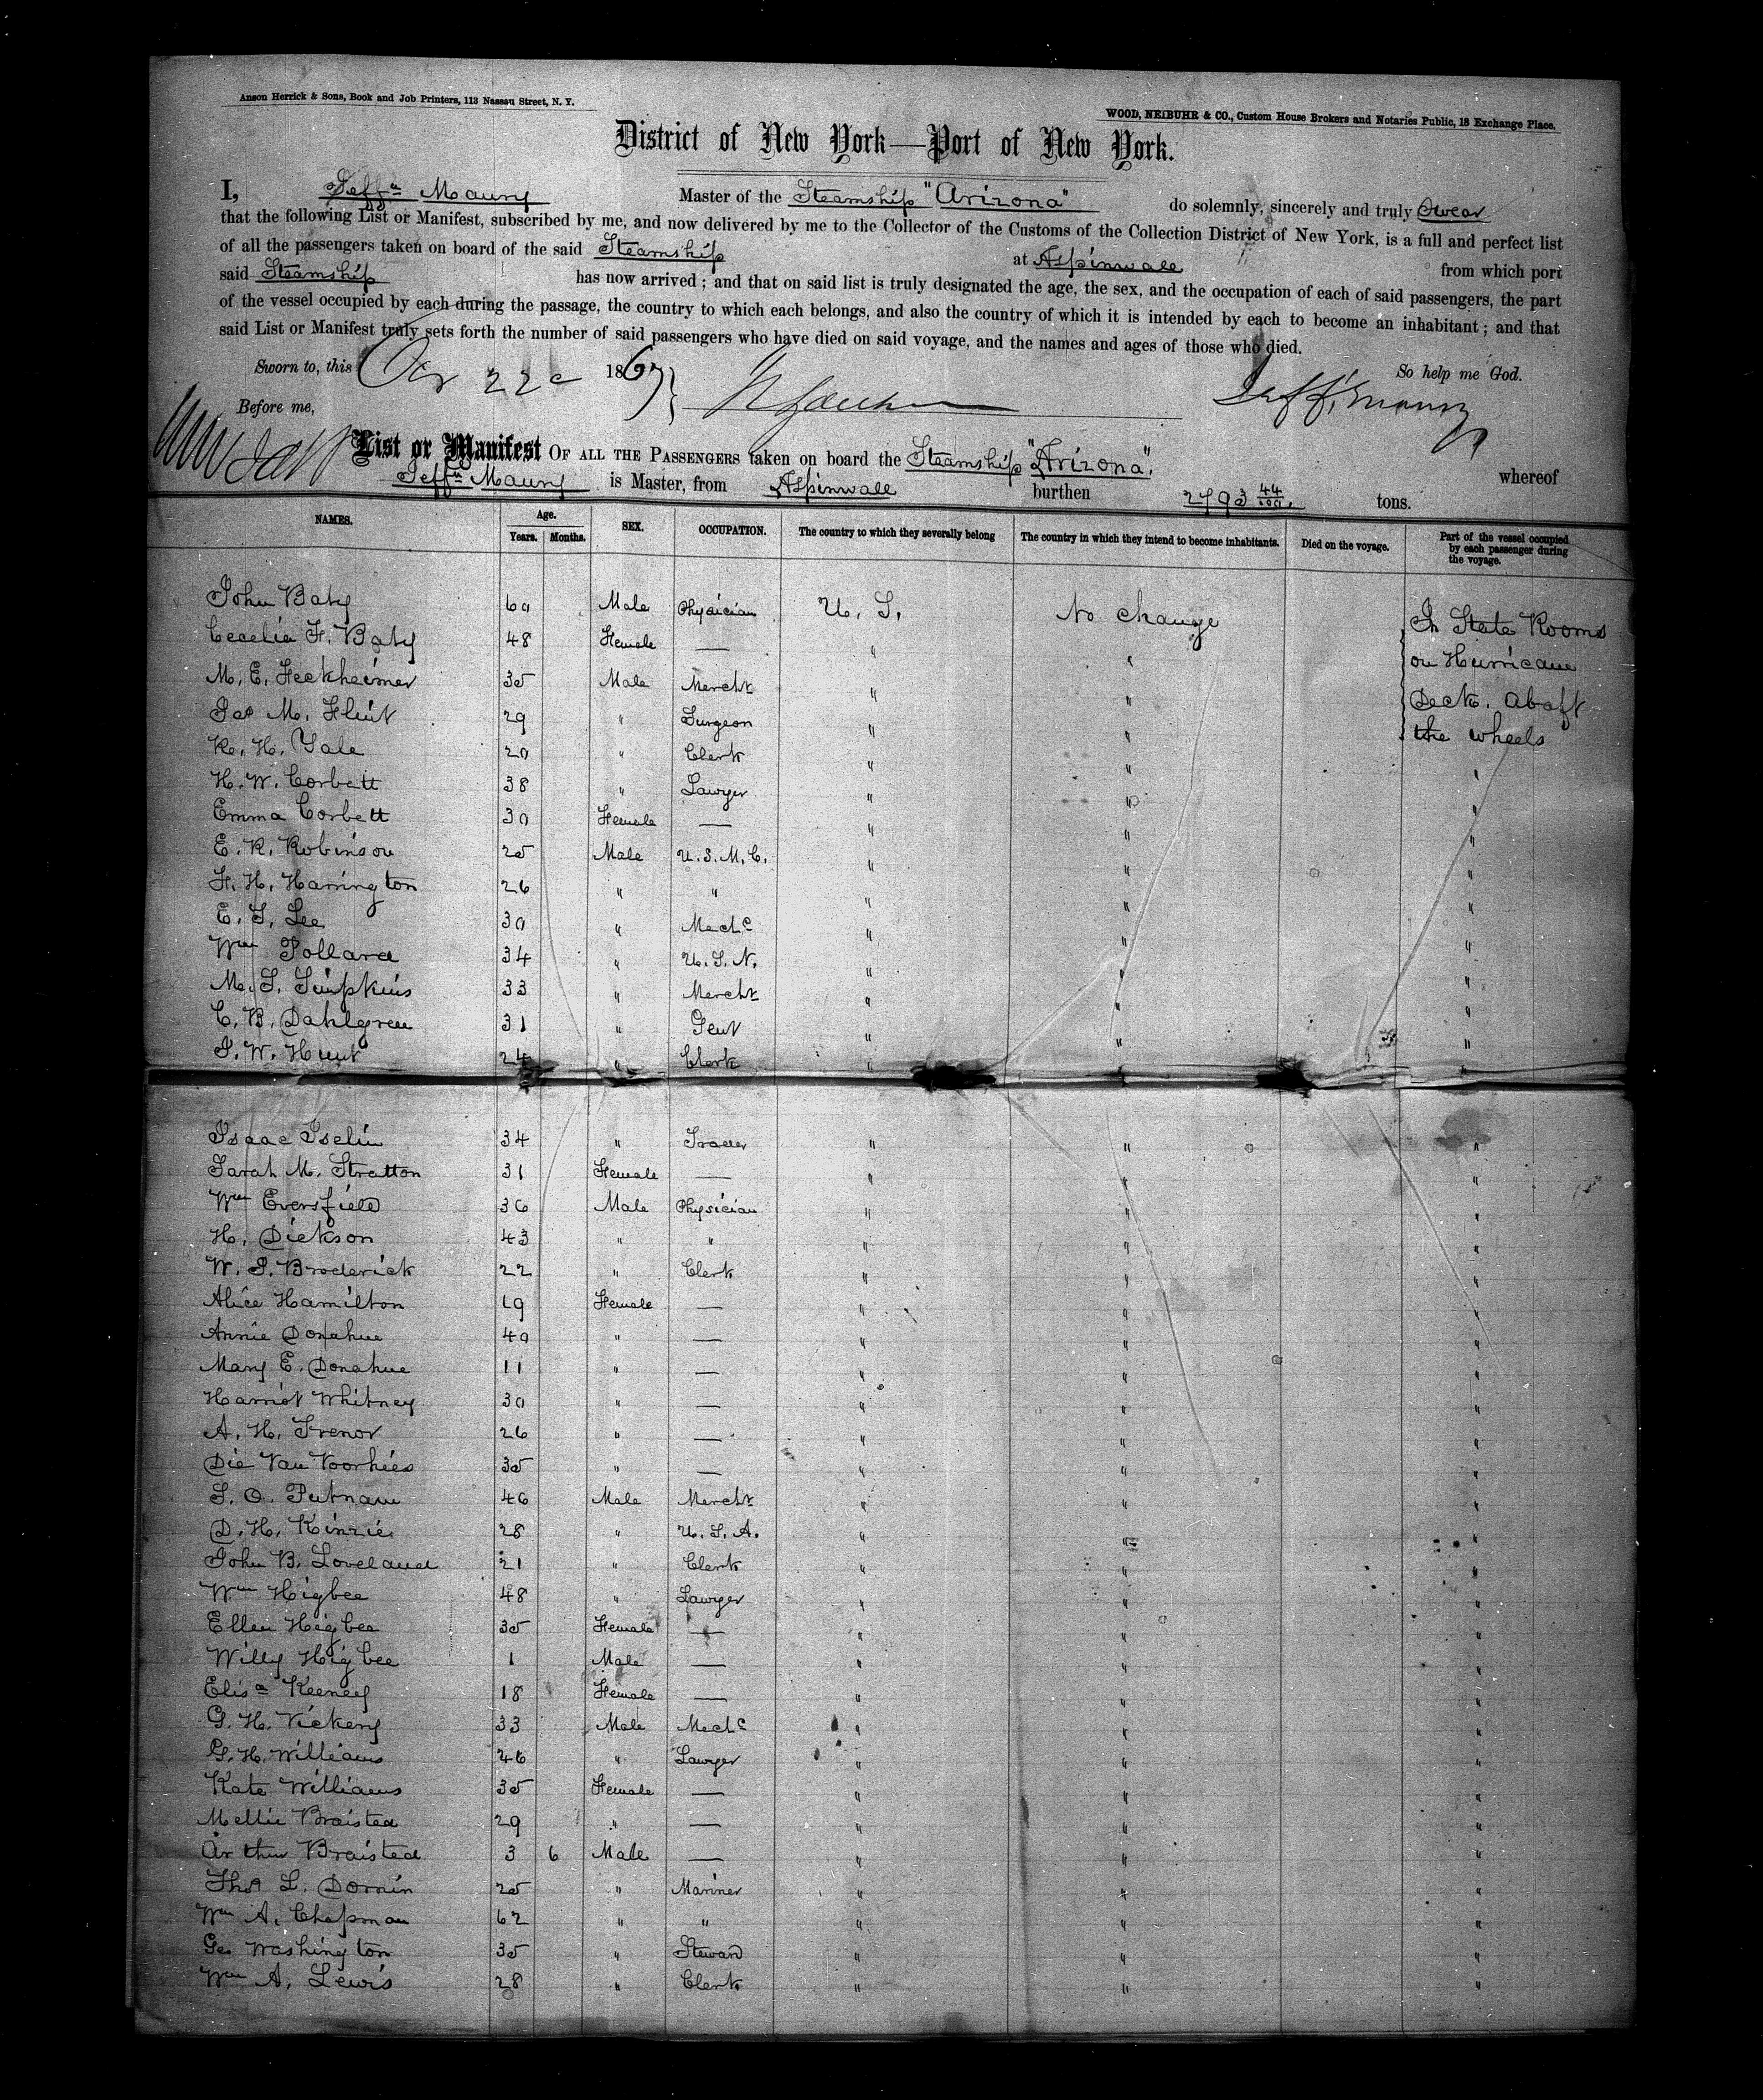 Anson Herrick & Sons, Book and Job Printers, 113 Nassau Street, N. Y.
WOOD, NEIBUHR & CO., Custom House Brokers and Notaries Public, 18 Exchange Place.
District of New York—Port of New York.
I, Jeffn Maury Master of the Steamship "Arizona" do solemnly, sincerely and truly Swear
that the following List or Manifest, subscribed by me, and now delivered by me to the Collector of the Customs of the Collection District of New York, is a full and perfect list
of all the passengers taken on board of the said Steamship at Aspinwall from which port
said Steamship has now arrived; and that on said list is truly designated the age, the sex, and the occupation of each of said passengers, the part
of the vessel occupied by each during the passage, the country to which each belongs, and also the country of which it is intended by each to become an inhabitant; and that
said List or Manifest truly sets forth the number of said passengers who have died on said voyage, and the names and ages of those who died.
Sworn to, this Oct 22 1867 So help me God.
Before me, Jeffn Maury
List or Manifest OF ALL THE PASSENGERS taken on board the Steamship "Arizona". whereof
Jeffn Maury is Master, from Aspinwall burthen 2793 44/100. tons.
NAMES. Age. Years. Months. SEX. OCCUPATION. The country to which they severally belong The country in which they intend to become inhabitants. Died on the voyage. Part of the vessel occupied by each passenger during the voyage.
John Baty 60 Male Physician U. S. No change In State Rooms
Cecelia F. Baty 48 Female — " " on Hurricane
M. E. Feckheimer 35 Male Mercht " " Deck. Abaft
Jas M. Flint 29 " Surgeon " " the wheels
R. H. Yale 20 " Clerk " " "
H. W. Corbett 38 " Lawyer " " "
Emma Corbett 30 Female — " " "
E. R. Robinson 25 Male U. S. M. C. " " "
F. H. Harrington 26 " " " " "
E. S. Lee 30 " Mechc " " "
Wm Pollard 34 " U. S. N. " " "
M. S. Simpkins 33 " Mercht " " "
C. B. Dahlgren 31 " Gent " " "
J. W. Hunt 24 " Clerk " " "
Isaac Iselin 34 " Trader " " "
Sarah M. Stratton 31 Female — " " "
Wm Eversfield 36 Male Physician " " "
H. Dickson 43 " " " " "
W. J. Broderick 22 " Clerk " " "
Alice Hamilton 19 Female — " " "
Annie Donahue 40 " — " " "
Mary E. Donahue 11 " — " " "
Harriet Whitney 30 " — " " "
A. H. Trenor 26 " — " " "
Die Van Voorhies 35 " — " " "
S. O. Putnam 46 Male Mercht " " "
D. H. Kinzie 28 " U. S. A. " " "
John B. Loveland 21 " Clerk " " "
Wm Higbee 48 " Lawyer " " "
Ellen Higbee 35 Female — " " "
Willy Higbee 1 Male — " " "
Elisa Keeney 18 Female — " " "
G. H. Vickery 33 Male Mechc " " "
G. H. Williams 46 " Lawyer " " "
Kate Williams 35 Female — " " "
Mellie Braisted 29 " — " " "
Arthur Braisted 3 6 Male — " " "
Thos L. Dornin 25 " Mariner " " "
Wm A. Chapman 62 " " " " "
Geo Washington 35 " Steward " " "
Wm A. Lewis 28 " Clerk " " "